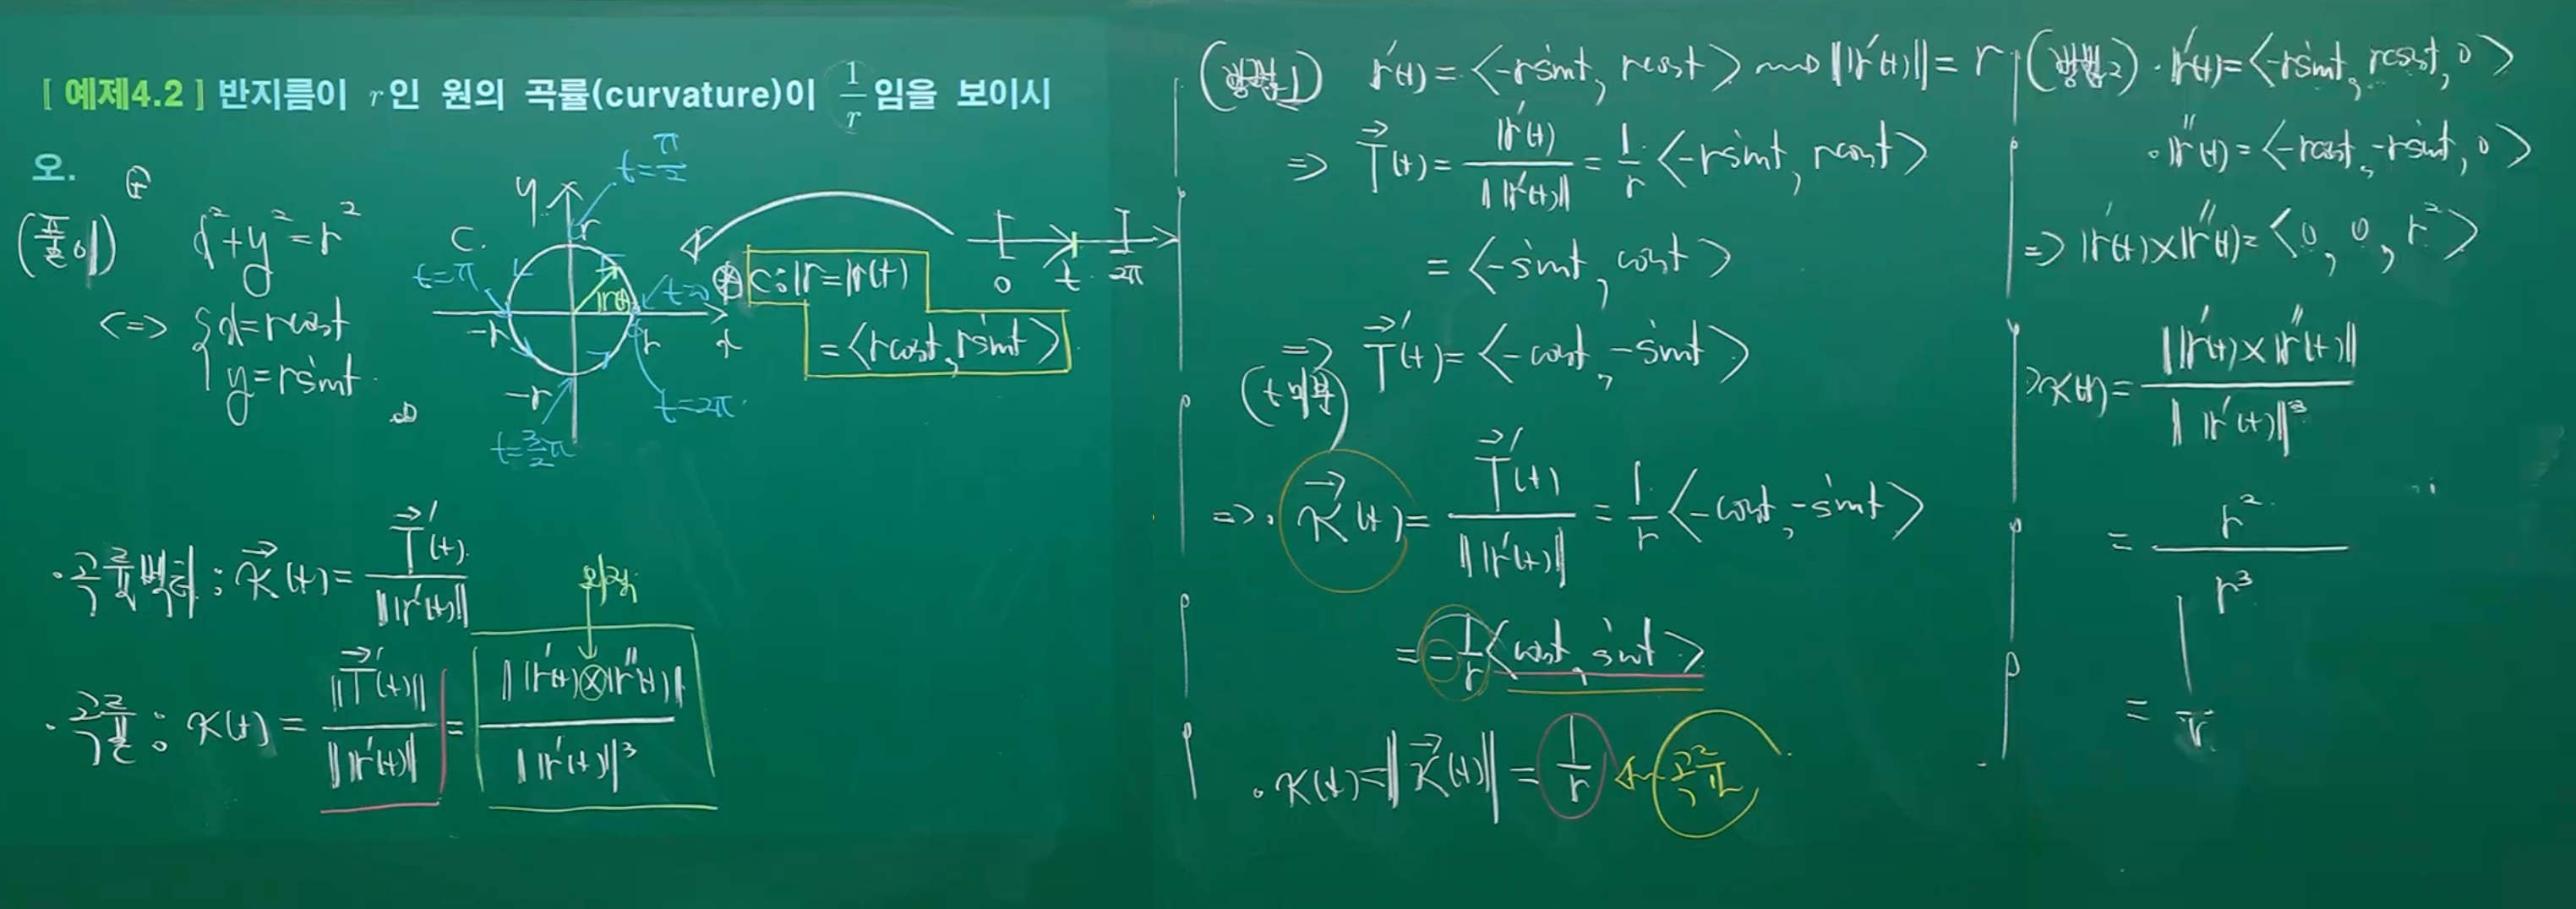 [ 예제4.2 ] 반지름이 r인 원의 곡률(curvature)이 1/r 임을 보이시
오.
(풀이)
x²+y²=r²
<=> { x=rcost
y=rsint
y
t=π/2
r
C.
t=π
-r
r(t)
t=0
r
x
-r
t=3/2π
t=2π
0 t 2π
⊛ C: r=r(t)
=<rcost, rsint>
·곡률벡터 : K⃗(t)= T⃗'(t) / ||r'(t)||
외적
·곡률 : K(t) = ||T⃗'(t)|| / ||r'(t)|| = ||r'(t)⊗r''(t)|| / ||r'(t)||³
(방법1) r'(t)=<-rsint, rcost> ⇝ ||r'(t)||=r
=> T⃗(t)= r'(t) / ||r'(t)|| = 1/r <-rsint, rcost>
= <-sint, cost>
=> T⃗'(t)= <-cost, -sint>
(t미분)
=> · K⃗(t)= T⃗'(t) / ||r'(t)|| = 1/r <-cost, -sint>
= -1/r <cost, sint>
· K(t)=||K⃗(t)|| = 1/r ← 곡률
(방법2) · r'(t)=<-rsint, rcost, 0>
· r''(t)=<-rcost, -rsint, 0>
=> r'(t)×r''(t)= <0, 0, r²>
K(t)= ||r'(t)×r''(t)|| / ||r'(t)||³
= r² / r³
= 1/r